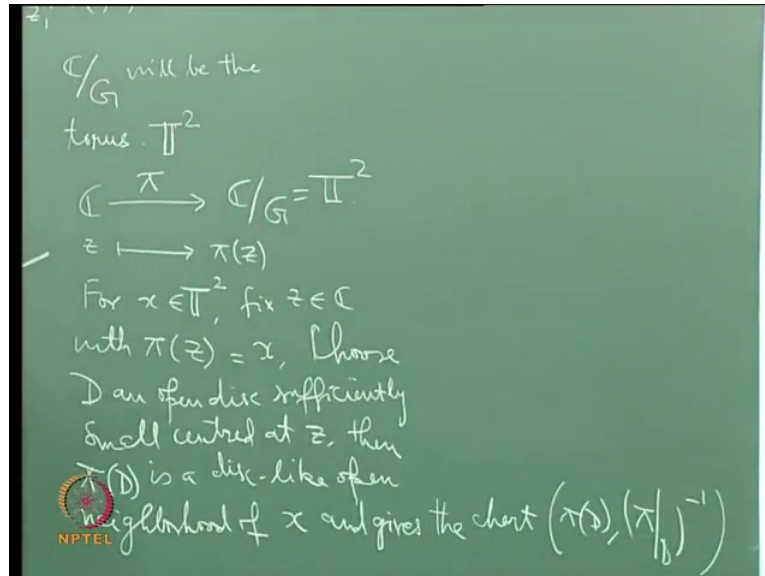 z₁
ℂ/G will be the
torus. 𝕋²
ℂ —π→ ℂ/G = 𝕋².
z ⟼ π(z)
For x ∈ 𝕋², fix z ∈ ℂ
with π(z) = x, Choose
D an open disc sufficiently
small centred at z, then
π(D) is a disc-like open
neighborhood of x and gives the chart (π(D), (π|_D)⁻¹)
NPTEL